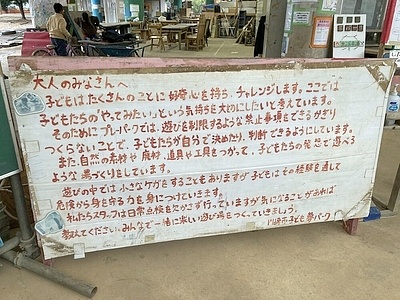 大人のみなさんへ
子どもは、たくさんのことに好奇心を持ち、チャレンジします。ここでは
子どもたちの「やってみたい」という気持ちを大切にしたいと考えています。
そのためにプレーパークでは、遊びを制限するような禁止事項をできるかぎり
つくらないことで、子どもたちが自分で決めたり、判断できるようにしています。
また、自然の素材や廃材、道具や工具をつかって、子どもたちの発想で遊べる
ような場づくりをしています。
遊びの中では小さなケガをすることもありますが、子どもはその経験を通して
危険から身を守る力を身につけていきます。
私たちスタッフは日常点検を欠かさず行っていますが気になることがあれば
教えてください。みんなで一緒に楽しい遊び場をつくっていきましょう。
川崎市子ども夢パーク